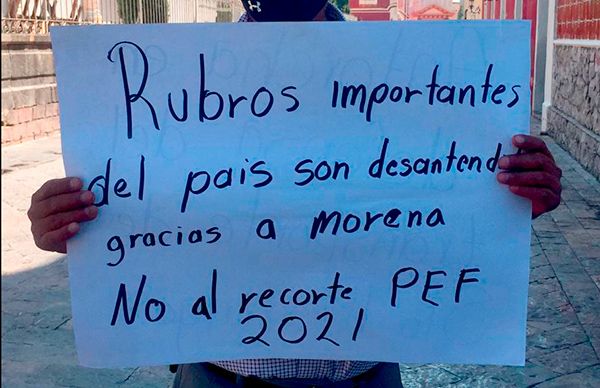 Rubros importantes
del pais son desantend
gracias a morena
No al recorte PEF
2021